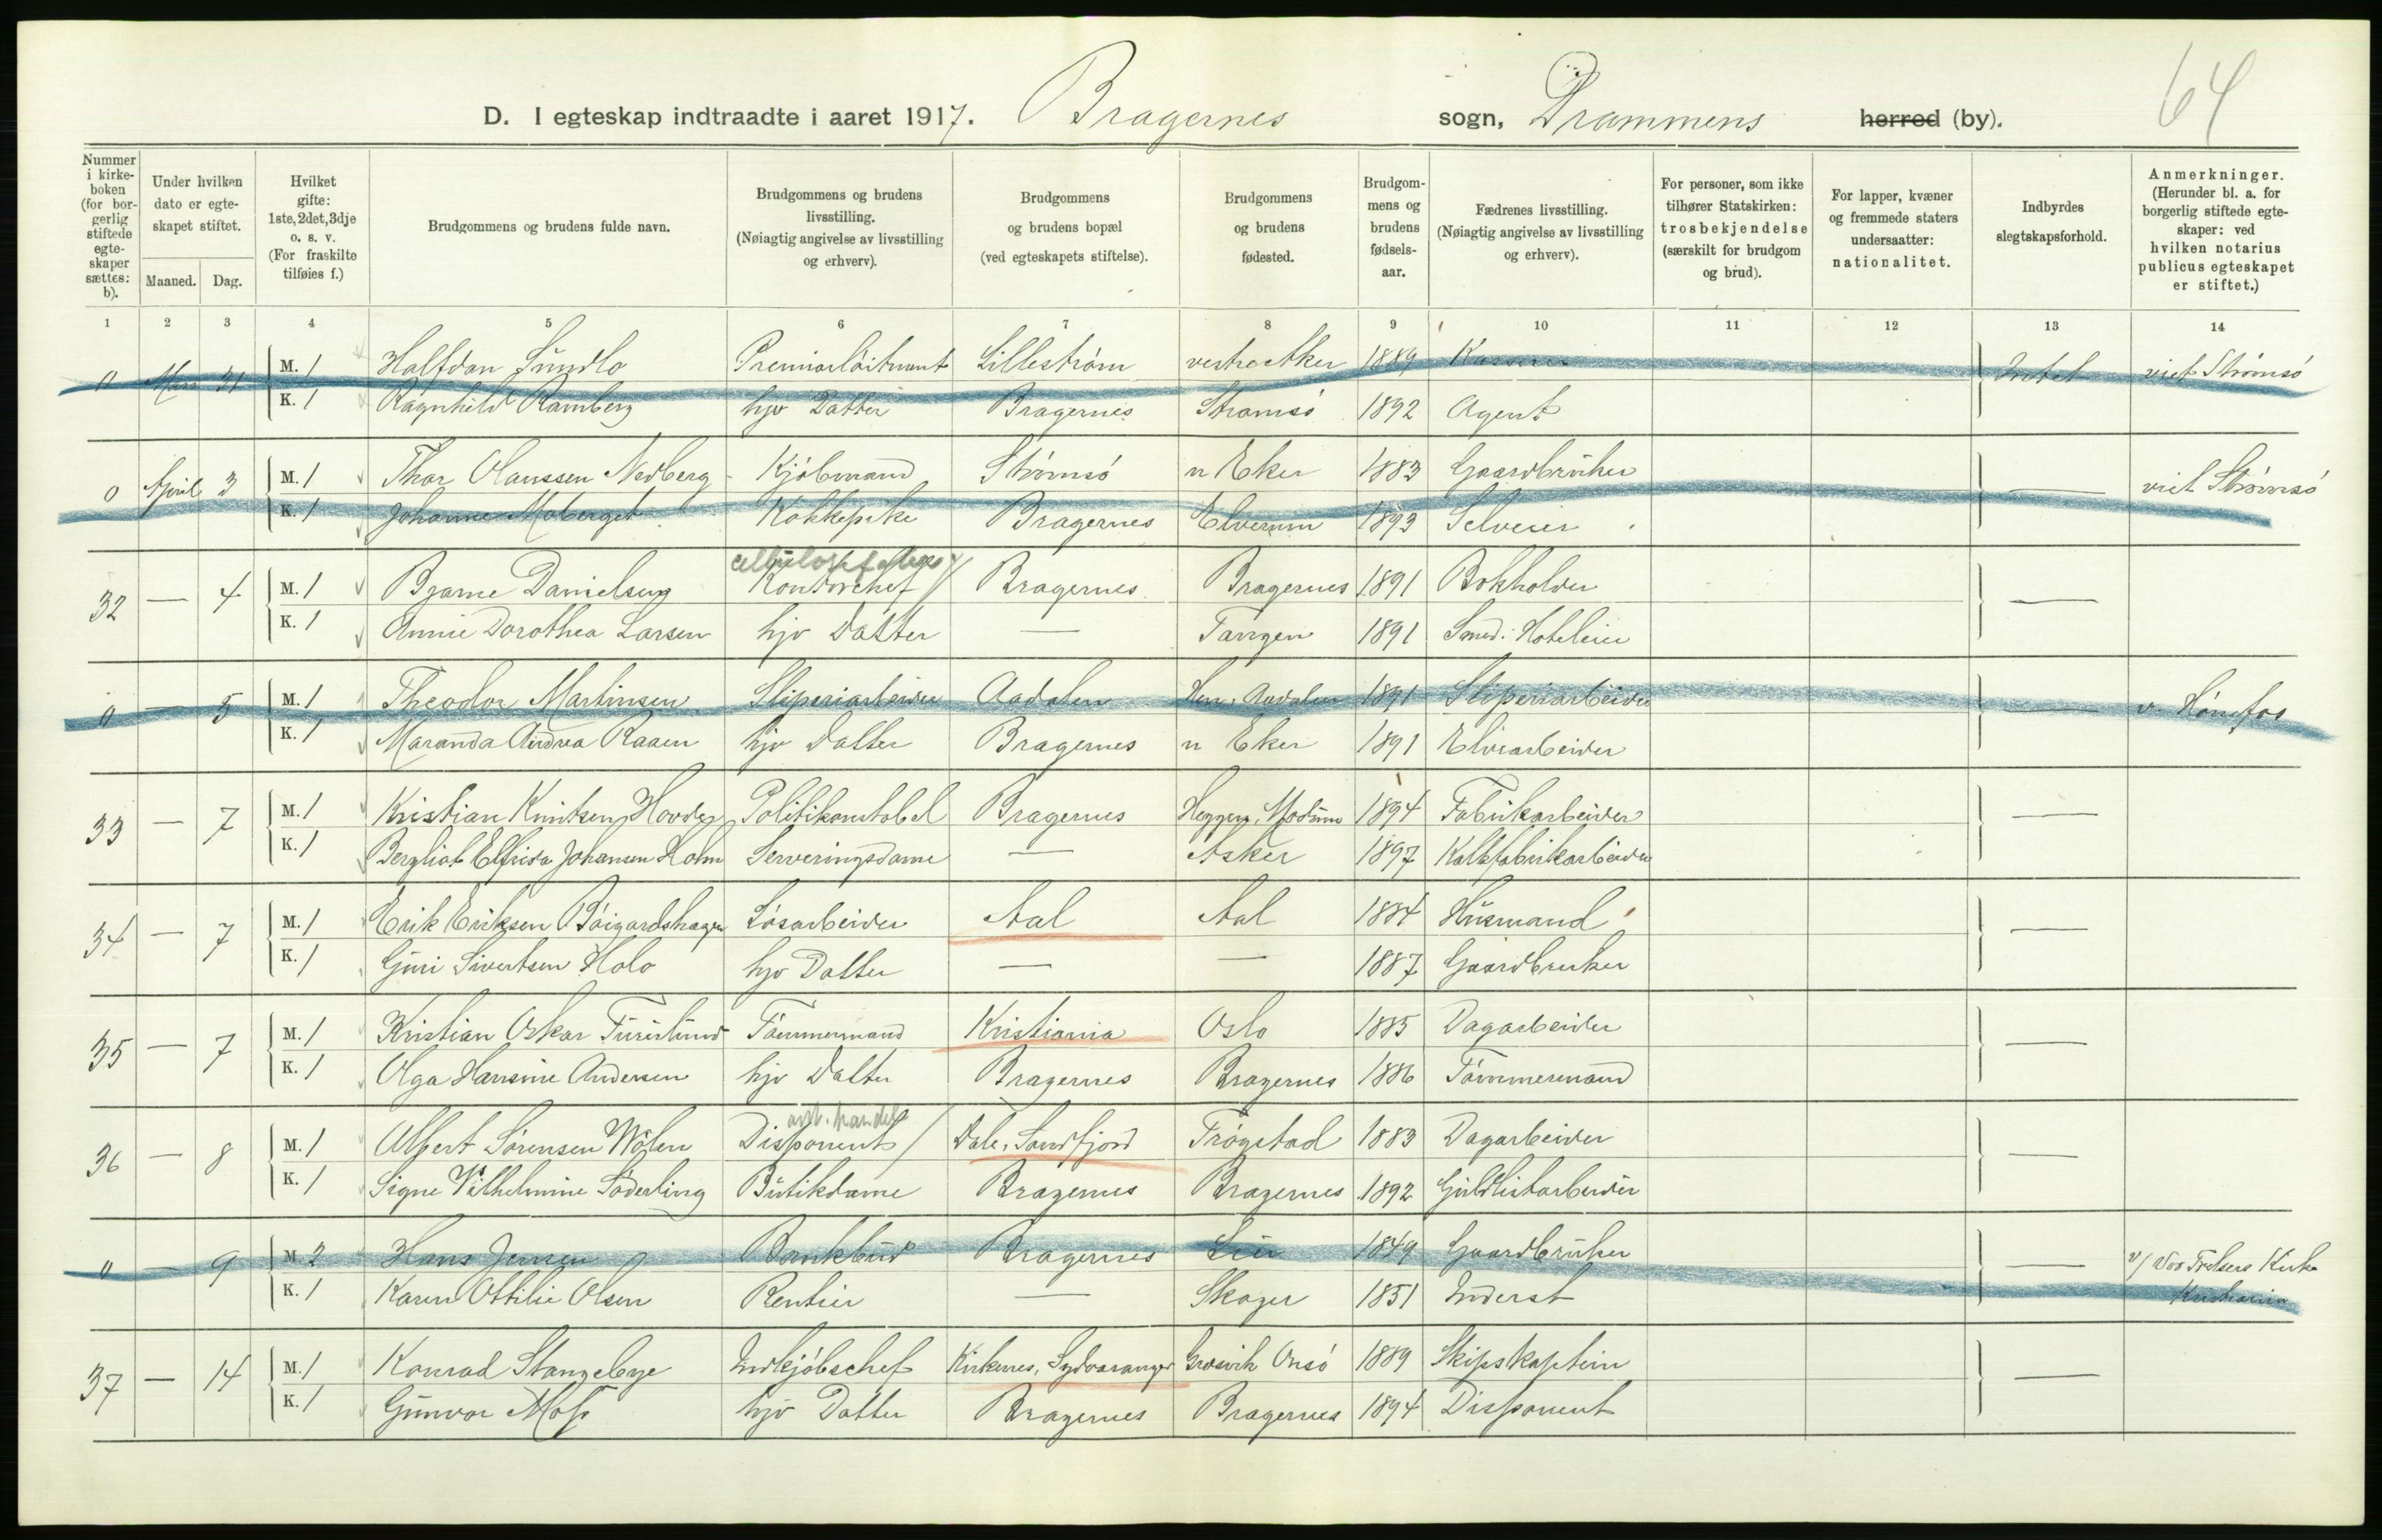 64
D. I egteskap indtraadte i aaret 1917. Bragernes sogn, Drammens herred (by).
Nummer i kirkeboken (for borgerlig stiftede egteskaper sættes: b).
Under hvilken dato er egteskapet stiftet.
Maaned. Dag.
Hvilket gifte: 1ste, 2det, 3dje o. s. v. (For fraskilte tilføies f.)
Brudgommens og brudens fulde navn.
Brudgommens og brudens livsstilling. (Nøiagtig angivelse av livsstilling og erhverv).
Brudgommens og brudens bopæl (ved egteskapets stiftelse).
Brudgommens og brudens fødested.
Brudgommens og brudens fødselsaar.
Fædrenes livsstilling. (Nøiagtig angivelse av livsstilling og erhverv).
For personer, som ikke tilhører Statskirken: trosbekjendelse (særskilt for brudgom og brud).
For lapper, kvæner og fremmede staters undersaatter: nationalitet.
Indbyrdes slegtskapsforhold.
Anmerkninger. (Herunder bl. a. for borgerlig stiftede egteskaper: ved hvilken notarius publicus egteskapet er stiftet.)
1 2 3 4 5 6 7 8 9 10 11 12 13 14
0 Mars 31 M. 1 Halfdan Sundlo Premierløitnant Lillestrøm vestre Aker 1889 Kasserer Intet viet Strømsø
K. 1 Ragnhild Ramberg hjv Datter Bragernes Strømsø 1892 Agent
0 April 3 M. 1 Thor Olaussen Nedberg Kjøbmand Strømsø n Eker 1883 Gaardbruker — viet Strømsø
K. 1 Johanne Moberget Kokkepike Bragernes Elverum 1893 Selveier
32 — 4 M. 1 Bjarne Danielsen Kontorchef Bragernes Bragernes 1891 Bokholder —
K. 1 Annie Dorothea Larsen hjv Datter — Tangen 1891 Hoteleier
0 — 5 M. 1 Theodor Martinsen Sliperiarbeider Aadalen Hen, Aadalen 1891 Sliperiarbeider — v. Hønefos
K. 1 Maranda Andrea Raaen hjv Datter Bragernes n Eker 1891 Elvearbeider
33 — 7 M. 1 Kristian Knutsen Hovde Politikonstabel Bragernes Heggen, Modum 1894 Fabrikarbeider —
K. 1 Bergliot Elfrida Johansen Holm Serveringsdame — Asker 1897 Kalkfabrikarbeider
34 — 7 M. 1 Erik Eriksen Bøigardshagen Løsarbeider Aal Aal 1884 Husmand —
K. 1 Guri Sivertsen Holo hjv Datter — — 1887 Gaardbruker
35 — 7 M. 1 Kristian Oskar Tømmermand Kristiania Oslo 1885 Dagarbeider —
K. 1 Olga Hansine Andersen hjv Datter Bragernes Bragernes 1886 Tømmermand
36 — 8 M. 1 Albert Sørensen Mølen Disponent Dale, Søndfjord Trøgstad 1883 Dagarbeider —
K. 1 Signe Vilhelmine Søderling Butikdame Bragernes Bragernes 1892 Guldlistarbeider
0 — 9 M. 2 Hans Jensen Bankbud Bragernes Lier 1849 Gaardbruker — v/ Vor Frelsers Kirke
K. 1 Karen Ottilie Olsen Rentier — Skoger 1851 Inderst Kristiania
37 — 14 M. 1 Konrad Stangebye Indkjøbschef Kirkenes, Sydvaranger Onsø 1889 Skipskaptein —
K. 1 Gunvor Moss hjv Datter Bragernes Bragernes 1894 Disponent